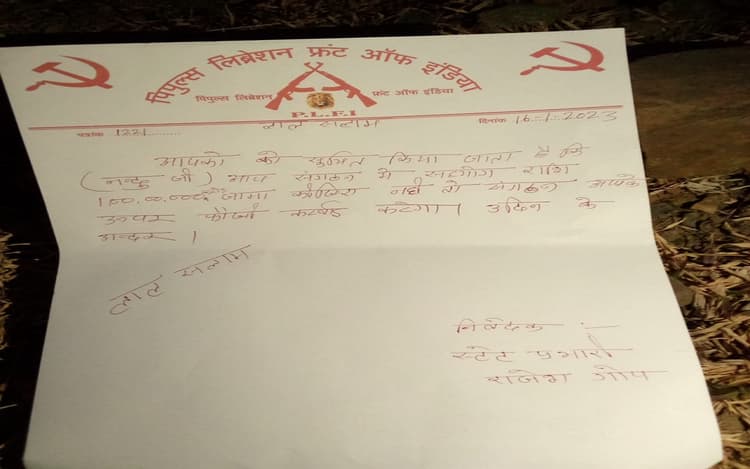 पिपुल्स लिब्रेशन फ्रंट ऑफ इंडिया
पिपुल्स लिब्रेशन फ्रंट ऑफ इंडिया
P.L.F.I
पत्रांक 1221......... लाल सलाम दिनांक 16-1-2023
आपको को सुचित किया जाता है कि
(नन्दु जी) आप संगठन में सहयोग राशि
जामा किजिए नहीं तो संगठन आपके
ऊपर फौजी करेगा। 3दिन के
अन्दर।
लाल सलाम
निवेदक :-
स्टेट प्रभारी
राजेश गोप